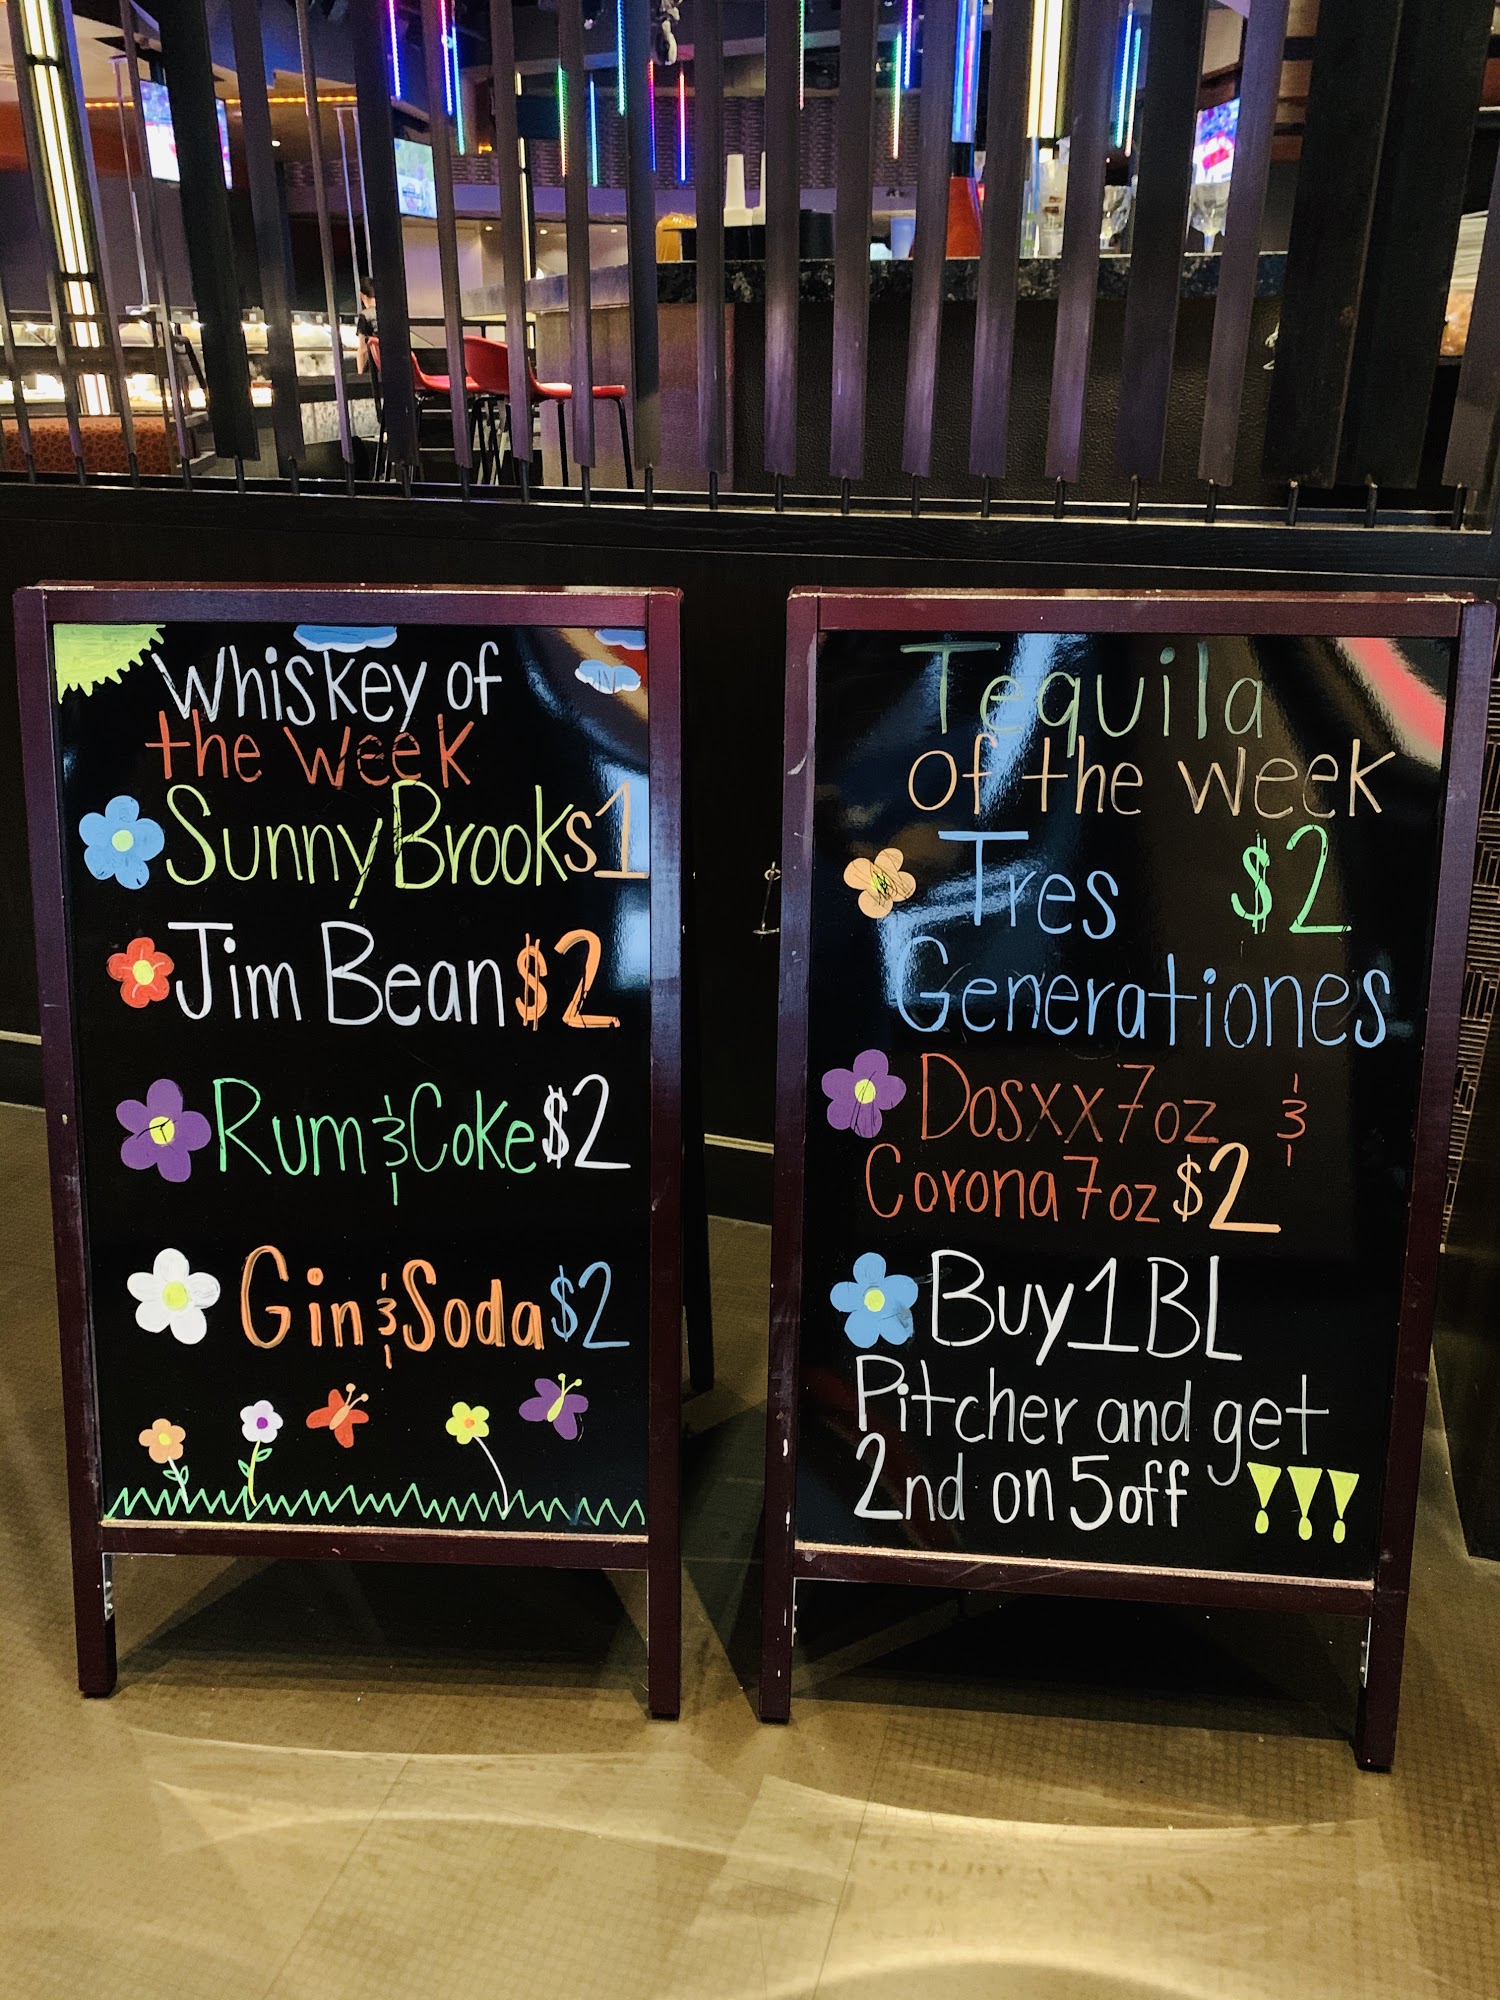 Whiskey of
the week
Sunny Brooks1
Jim Bean $2
Rum & Coke $2
Gin & Soda $2
Tequila
of the week
Tres $2
Generationes
Dosxx 7oz &
Corona 7oz $2
Buy 1 BL
Pitcher and get
2nd on 5off !!!